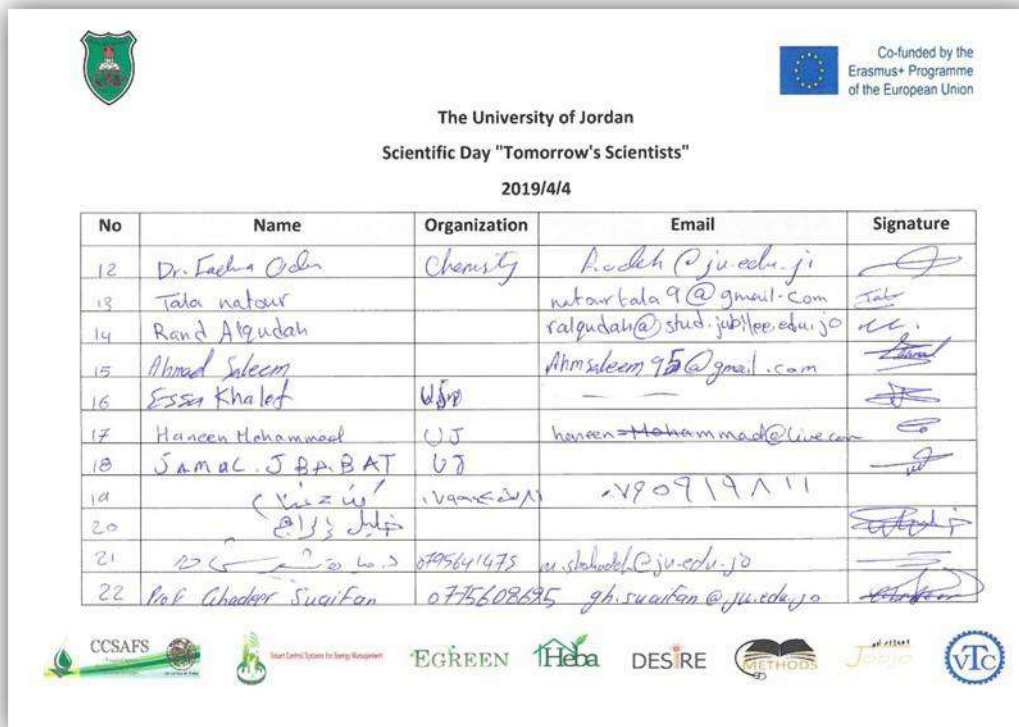 Co-funded by the
Erasmus+ Programme
of the European Union
The University of Jordan
Scientific Day "Tomorrow's Scientists"
2019/4/4
No Name Organization Email Signature
12 Dr. @ju.edu.
13 Tala natour natourtala9@gmail.com Tala
14 Rand Alqudah ralqudah@stud.jubilee.edu.jo
15 Ahmad Saleem Ahmsaleem95@gmail.com
16 Essa Khalef
17 Haneen Mohammad UJ haneen-Mohammad@live.com
18 JAMAL.JBABAT UJ
19 ٠٧٩٠٩١٩٨١١
20 خليل
21 0795641475 m.shahadeh@ju.edu.jo
22 Prof Ghadeer Suaifan 0775608695 gh.suaifan@ju.edu.jo
CCSAFS Smart Control Systems for Energy Management EGREEN Heba DESIRE METHODS JOBJO VTC